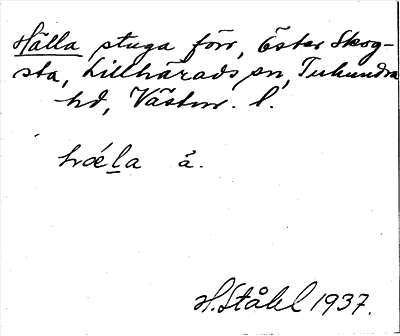 Hälla stuga förr, Öster Skog-
sta, Lillhärads sn, Tuhundra
hd, Västm. l.
hǽla å.
H. Ståhl 1937.